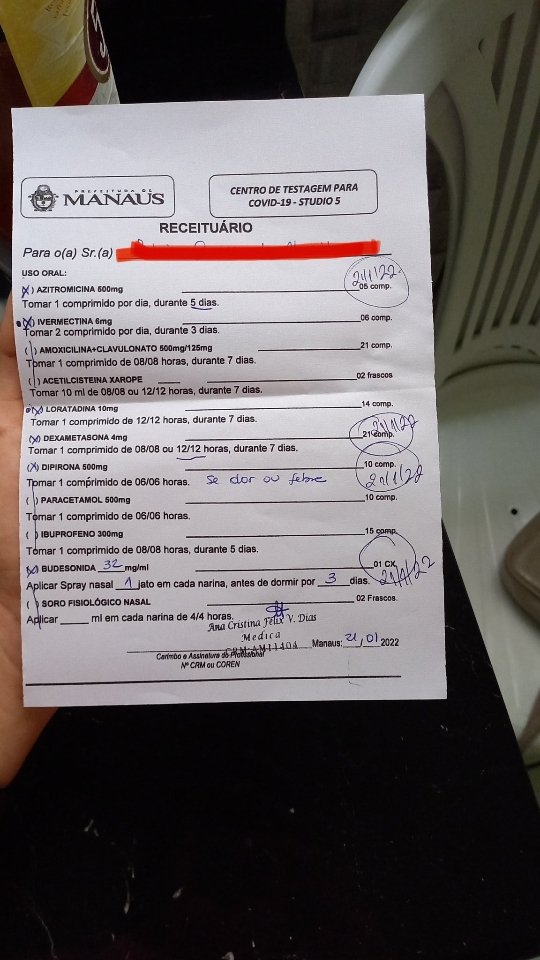 PREFEITURA DE
MANAUS
CENTRO DE TESTAGEM PARA
COVID-19 - STUDIO 5
RECEITUÁRIO
Para o(a) Sr.(a)
USO ORAL:
21/1/22
(X) AZITROMICINA 500mg 05 comp.
Tomar 1 comprimido por dia, durante 5 dias.
(X) IVERMECTINA 6mg 06 comp.
Tomar 2 comprimido por dia, durante 3 dias.
( ) AMOXICILINA+CLAVULONATO 500mg/125mg 21 comp.
Tomar 1 comprimido de 08/08 horas, durante 7 dias.
( ) ACETILCISTEINA XAROPE 02 frascos
Tomar 10 ml de 08/08 ou 12/12 horas, durante 7 dias.
(X) LORATADINA 10mg 14 comp.
Tomar 1 comprimido de 12/12 horas, durante 7 dias.
21/1/22
(X) DEXAMETASONA 4mg 21 comp.
Tomar 1 comprimido de 08/08 ou 12/12 horas, durante 7 dias.
(X) DIPIRONA 500mg 10 comp.
Tomar 1 comprimido de 06/06 horas. Se dor ou febre 21/1/22
( ) PARACETAMOL 500mg 10 comp.
Tomar 1 comprimido de 06/06 horas.
( ) IBUPROFENO 300mg 15 comp.
Tomar 1 comprimido de 08/08 horas, durante 5 dias.
(X) BUDESONIDA 32 mg/ml 01 CX.
21/1/22
Aplicar Spray nasal 1 jato em cada narina, antes de dormir por 3 dias.
( ) SORO FISIOLÓGICO NASAL 02 Frascos.
Aplicar ml em cada narina de 4/4 horas.
Ana Cristina Felix V. Dias
Medica
CRM-AM11404
Manaus: 21/01 2022
Carimbo e Assinatura do Profissional
Nº CRM ou COREN